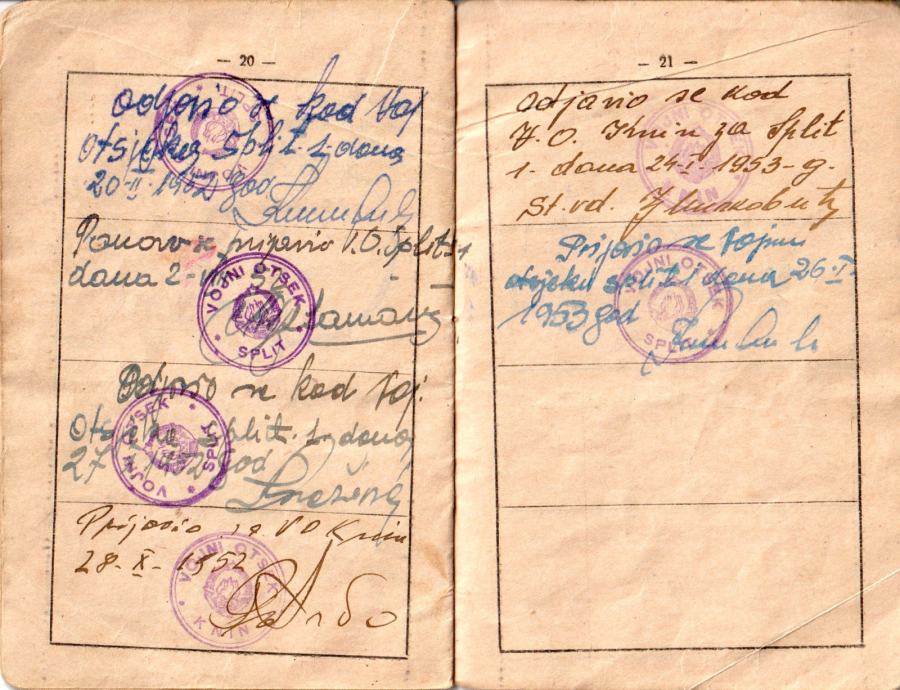 — 20 —
Odjavio se kod Voj
otsjeka Split. 1. dana
20-II-1952 god
Ponovo se prijavio V.O. Split 1
dana 2-
VOJNI OTSEK
SPLIT
Odjavio se kod Voj.
Otsjeka Split. 1. dana
27 1952 god
VOJNI OTSEK
SPLIT
Prijavio se VO Knin
28-X-1952
VOJNI OTSEK
KNIN
— 21 —
Odjavio se kod
V.O. Knin za Split
1. dana 24-I-1953-g.
St. vd.
VOJNI OTSEK
KNIN
Prijavio se Vojnom
otsjeku Split 1 dana 26-I-
1953 god
VOJNI OTSEK
SPLIT